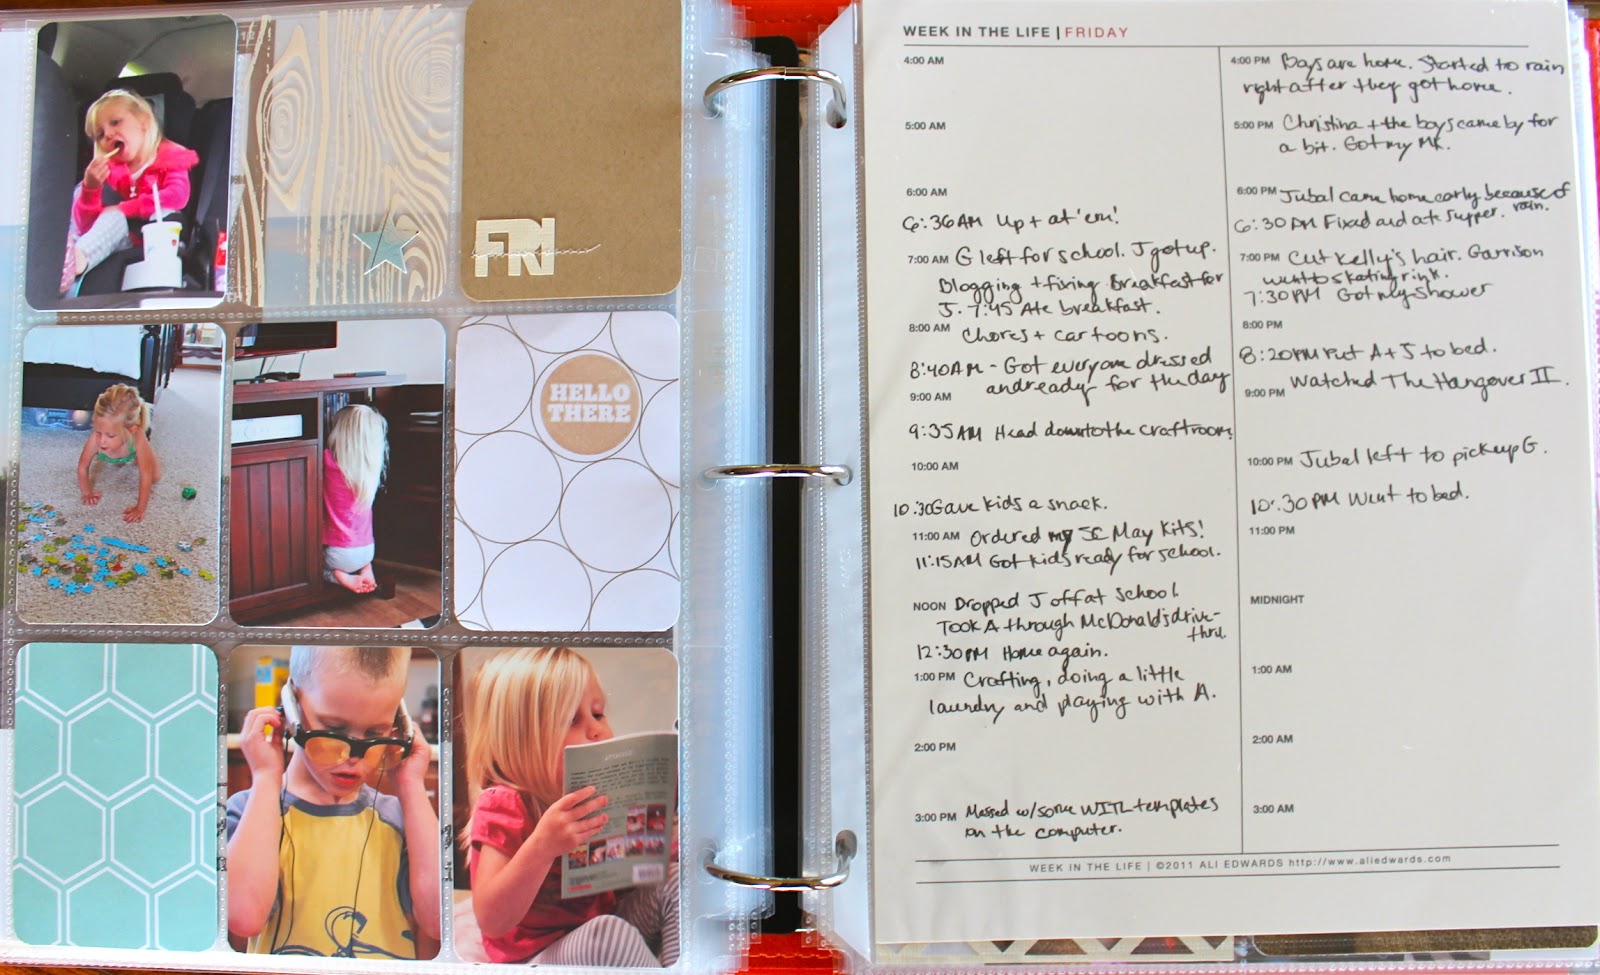 FRI
HELLO
THERE
WEEK IN THE LIFE | FRIDAY
4:00 AM
5:00 AM
6:00 AM
6:36 AM Up + at 'em!
7:00 AM G left for school. J got up.
Blogging + fixing Breakfast for
J. 7:45 Ate breakfast.
8:00 AM Chores + cartoons.
8:40 AM - Got everyone dressed
and ready for the day
9:00 AM
9:35 AM Head down to the craft room.
10:00 AM
10:30 Gave kids a snack.
11:00 AM Ordered my SC May Kits!
11:15 AM Got kids ready for school.
NOON Dropped J off at School.
Took A through McDonald's drive-
thru.
12:30 PM Home again.
1:00 PM Crafting, doing a little
laundry and playing with A.
2:00 PM
3:00 PM Messed w/some WITL templates
on the computer.
4:00 PM Boys are home. Started to rain
right after they got home.
5:00 PM Christina + the boys came by for
a bit. Got my MK.
6:00 PM Jubal came home early because of
rain.
6:30 PM Fixed and ate supper.
7:00 PM Cut Kelly's hair. Garrison
went to skating rink.
7:30 PM Got my shower
8:00 PM
8:20 PM Put A + J to bed.
Watched The Hangover II.
9:00 PM
10:00 PM Jubal left to pick up G.
10:30 PM Went to bed.
11:00 PM
MIDNIGHT
1:00 AM
2:00 AM
3:00 AM
WEEK IN THE LIFE | ©2011 ALI EDWARDS http://www.aliedwards.com